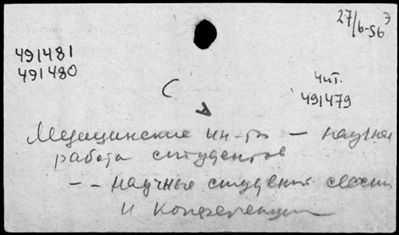 27/6-56 Э
491481
491480
С
Чит.
491479
Медицинские ин-ты — научная
работа студентов
— – научные студен. сессии
и конференции